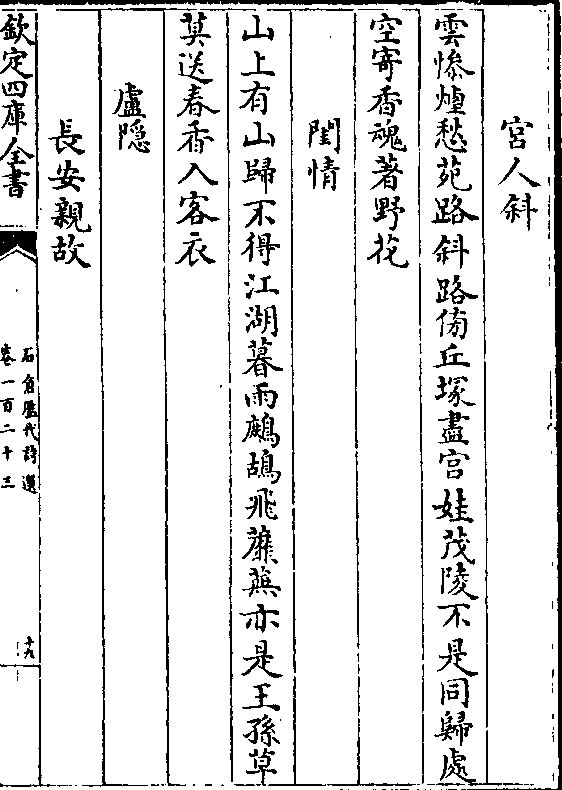 宮人斜
雲慘煙愁苑路斜路傍丘塚盡宫娃茂陵不是同歸處
空寄香魂著野花
閨情
山上有山歸不得江湖暮雨鷓鴣飛蘼蕪亦是王孫草
莫送春香入客衣
盧隠
長安親故
欽定四庫全書
石倉歷代詩選
卷一百二十三
十九